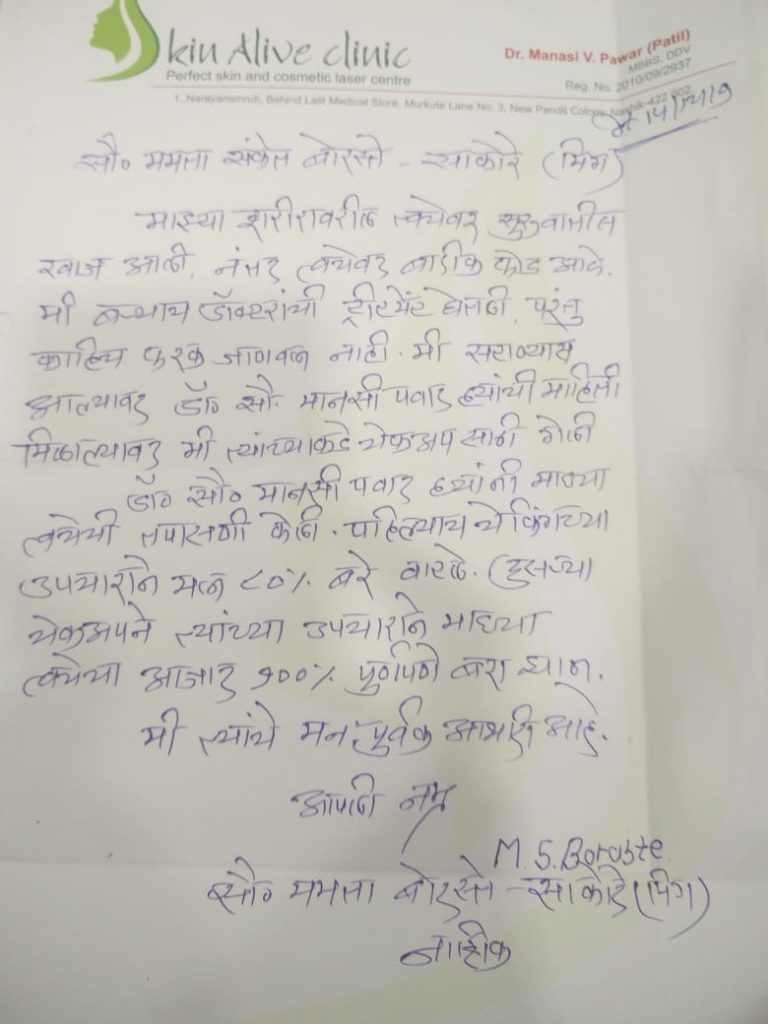 Skin Alive clinic
Perfect skin and cosmetic laser centre
Dr. Manasi V. Pawar (Patil)
MBBS. DDV
Reg. No. 2010/09/2937
1, Narayansmruti, Behind Lalit Medical Store, Murkute Lane No. 3, New Pandit Colony, Nashik-422 002
सौ॰ ममता संकेत बोरस्ते - साकोरे (मिग)
माझ्या शरीरावरील त्वचेवर सुरुवातीस
खाज आली, नंतर त्वचेवर बारीक फोड आले.
मी बऱ्याच डॉक्टरांची ट्रीटमेंट घेतली, परंतु
काहिच फरक जाणवला नाही. मी
आल्यावर डॉ॰ सौ. मानसी पवार ह्यांची माहिती
मिळाल्यावर मी त्यांच्याकडे चेकअप साठी गेली
डॉ॰ सौ॰ मानसी पवार ह्यांनी माझ्या
त्वचेची तपासणी केली. पहिल्याच चेकिंगच्या
उपचाराने मला ८०% बरे वाटले. दुसऱ्या
चेकअपने त्यांच्या उपचाराने माझ्या
त्वचेचा आजार १००% पुर्णपणे बरा झाला.
मी त्यांचे मनःपुर्वक आभारी आहे.
आपली नम्र
M. S. Boraste
सौ॰ ममता बोरस्ते - साकोरे (मिग)
नाशिक